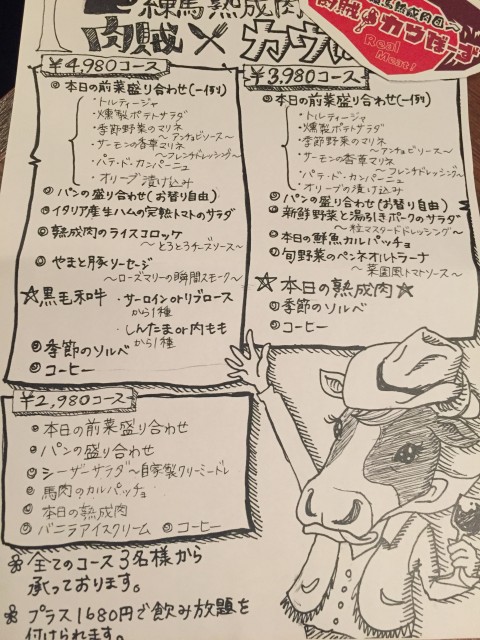 練馬熟成肉
肉賊×カウ
Real
Meat!
¥4,980コース
本日の前菜盛り合わせ(一例)
・トルティージャ
・燻製ポテトサラダ
・季節野菜のマリネ
〜アンチョビソース〜
・サーモンの香草マリネ
〜フレンチドレッシング〜
・パテ・ド・カンパーニュ
・オリーブ漬け込み
パンの盛り合わせ(お替り自由)
イタリア産生ハムの完熟トマトのサラダ
熟成肉のライスコロッケ
〜とろとろチーズソース〜
やまと豚ソーセージ
〜ローズマリーの瞬間スモーク〜
☆黒毛和牛・サーロインorリブロース
から1種
・しんたまor内もも
から1種
季節のソルベ
コーヒー
¥3,980コース
本日の前菜盛り合わせ(一例)
・トルティージャ
・燻製ポテトサラダ
・季節野菜のマリネ
〜アンチョビソース〜
・サーモンの香草マリネ
〜フレンチドレッシング〜
・パテ・ド・カンパーニュ
・オリーブの漬け込み
パンの盛り合わせ(お替り自由)
新鮮野菜と湯引きポークのサラダ
〜粒マスタードドレッシング〜
本日の鮮魚カルパッチョ
旬野菜のペンネオルトラーナ
〜菜園風トマトソース〜
☆本日の熟成肉☆
季節のソルベ
コーヒー
¥2,980コース
本日の前菜盛り合わせ
パンの盛り合わせ
シーザーサラダ〜自家製クリーミードレ
馬肉のカルパッチョ
本日の熟成肉
バニラアイスクリーム コーヒー
※全てのコース3名様から
承っております。
※プラス1680円で飲み放題を
付けられます。